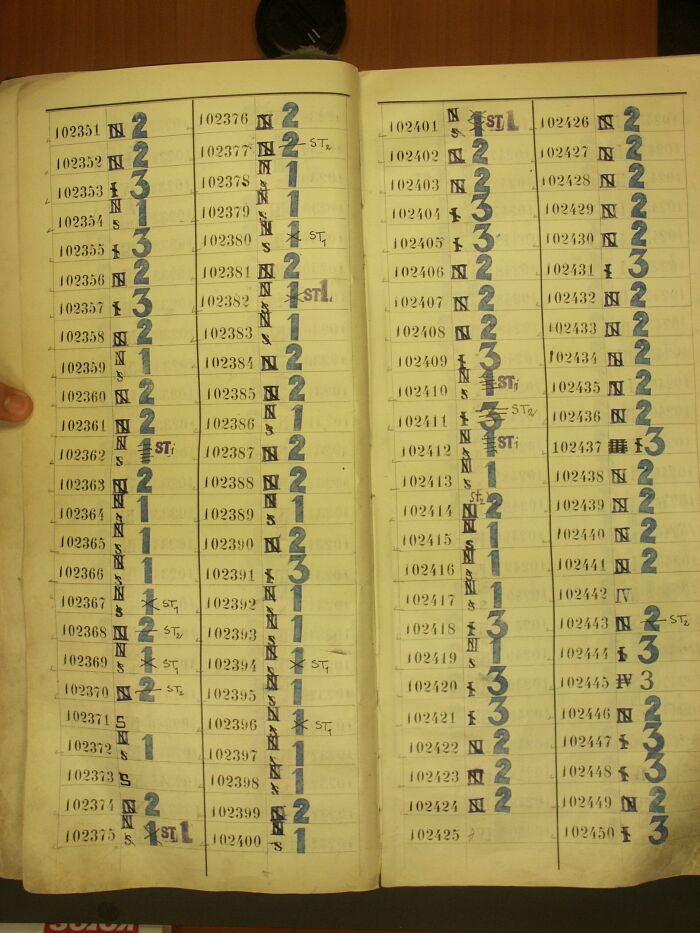 102351 N 2
102352 N 2
102353 I 3
102354 N s 1
102355 I 3
102356 N 2
102357 I 3
102358 N 2
102359 N s 1
102360 N 2
102361 N 2
102362 N s 1 ST1
102363 N 2
102364 N s 1
102365 N s 1
102366 N s 1
102367 N s 1 ST1
102368 N 2 ST2
102369 N s 1 ST1
102370 N 2 ST2
102371 S
102372 N s 1
102373 S
102374 N 2
102375 N s 1 ST1
102376 N 2
102377 N 2 ST2
102378 N s 1
102379 N s 1
102380 N s 1 ST1
102381 N 2
102382 N s 1 ST1
102383 N s 1
102384 N 2
102385 N 2
102386 N s 1
102387 N 2
102388 N 2
102389 N s 1
102390 N 2
102391 I 3
102392 N s 1
102393 N s 1
102394 N s 1 ST1
102395 N s 1
102396 N s 1 ST1
102397 N s 1
102398 N s 1
102399 N 2
102400 N s 1
102401 N s 1 ST1
102402 N 2
102403 N 2
102404 I 3
102405 I 3
102406 N 2
102407 N 2
102408 N 2
102409 I 3
102410 N s 1 ST1
102411 I 3 ST2
102412 N s 1 ST1
102413 N s 1
102414 N 2 St2
102415 N s 1
102416 N s 1
102417 N s 1
102418 I 3
102419 N s 1
102420 I 3
102421 I 3
102422 N 2
102423 N 2
102424 N 2
102425
102426 N 2
102427 N 2
102428 N 2
102429 N 2
102430 N 2
102431 I 3
102432 N 2
102433 N 2
102434 N 2
102435 N 2
102436 N 2
102437 I 3
102438 N 2
102439 N 2
102440 N 2
102441 N 2
102442 IV
102443 N 2 ST2
102444 I 3
102445 IV 3
102446 N 2
102447 I 3
102448 I 3
102449 N 2
102450 I 3